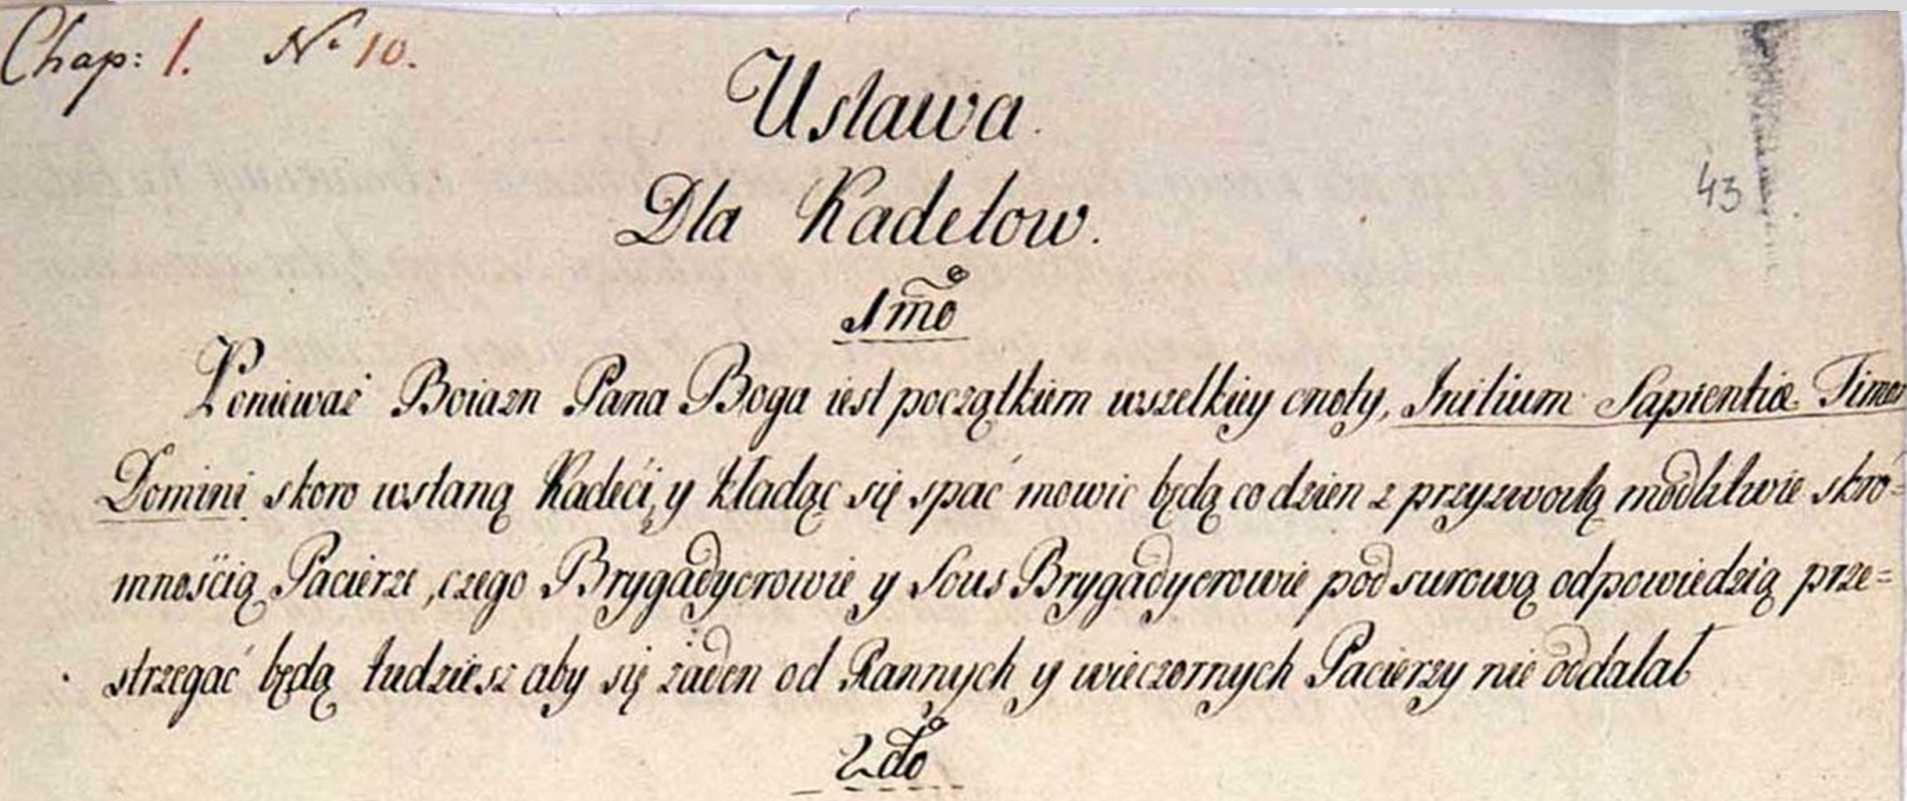 Chap: 1. No 10.
Ustawa.
Dla Kadetow.
43
1mo
Poniewaź Boiazn Pana Boga iest początkiem wszelkiey cnoty, Initium Sapientiæ Timor
Domini skoro wstaną Kadeći, y kładąc się spać mowic będą co dzien z przyzwoitą modlitwie skró=
mnością Pacierze, czego Brygadyerowie y Sous Brygadyerowie pod surową odpowiedzią prze=
strzegać będą tudziesz aby się żaden od Rannych y wieczornych Pacierzy nie oddalał
2do